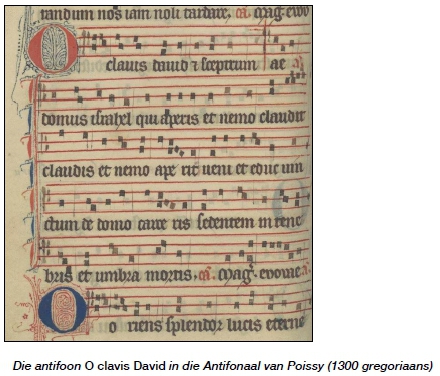 randum nos iam noli tardare, ca. mag. evov
O clavis david & sceptrum ae a.
domus israhel qui aperis et nemo claudit
claudis et nemo ape rit veni et educ vin
ctum de domo carce ris sedentem in tene
bris et umbra mortis. ca. mag. evovae a.
O o riens splendor lucis eterne
Die antifoon O clavis David in die Antifonaal van Poissy (1300 gregoriaans)